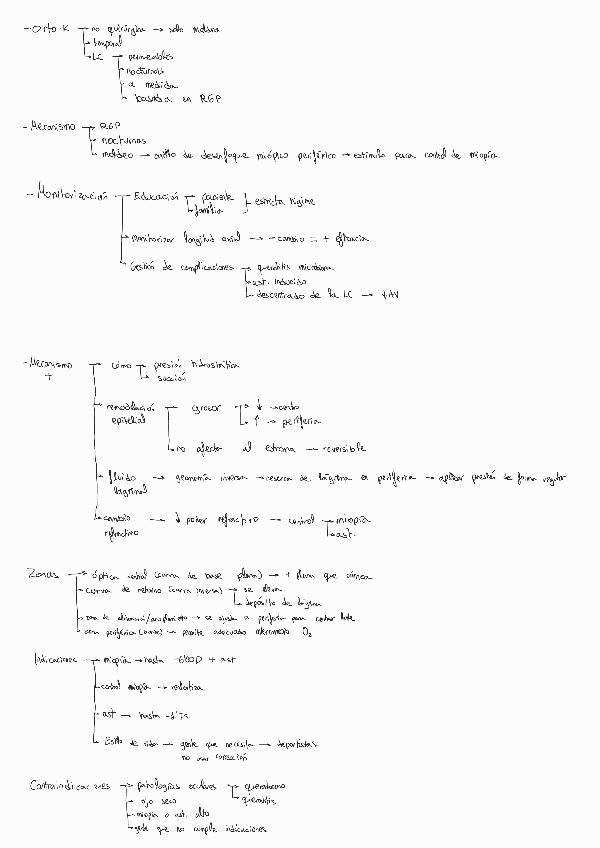 - Orto-K → no quirúrgica → solo moldea
→ temporal
→ LC → permeables
→ nocturnas
→ a medida
→ basada en RGP
- Mecanismo → RGP
→ nocturnas
→ moldeo → anillo de desenfoque miópico periférico → estímulo para control de miopía
- Monitorización → Educación → paciente
→ familia } estricta higiene
→ monitorizar longitud axial → - cambio = + eficacia
→ Gestión de complicaciones → queratitis microbiana
→ ast. inducido
→ descentrado de la LC → ↓AV
- Mecanismo + → cómo → presión hidrostática
→ succión
→ remodelación epitelial → grosor → ↓ → centro
→ ↑ → periferia
→ no afecta al estroma → reversible
→ fluido lagrimal → geometría inversa → reserva de lágrima en periferia → aplicar presión de forma regular
→ cambio refractivo → ↓ poder refractivo → control → miopía
→ ast.
Zonas → óptica central (curva de base plana) → + plana que córnea
→ curva de retorno (curva inversa) → se eleva
→ depósito de lágrima
→ zona de alineación/acoplamiento → se ajusta a periferia para centrar lente
→ zona periférica (borde) → permite adecuado intercambio O₂
Indicaciones → miopía → hasta -6'00D + ast
→ control miopía → ralentiza
→ ast → hasta -1'75
→ Estilo de vida → gente que necesita no usar corrección → deportistas
Contraindicaciones → patologías oculares → queratocono
→ queratitis
→ ojo seco
→ miopía o ast. alto
→ gente que no cumpla indicaciones